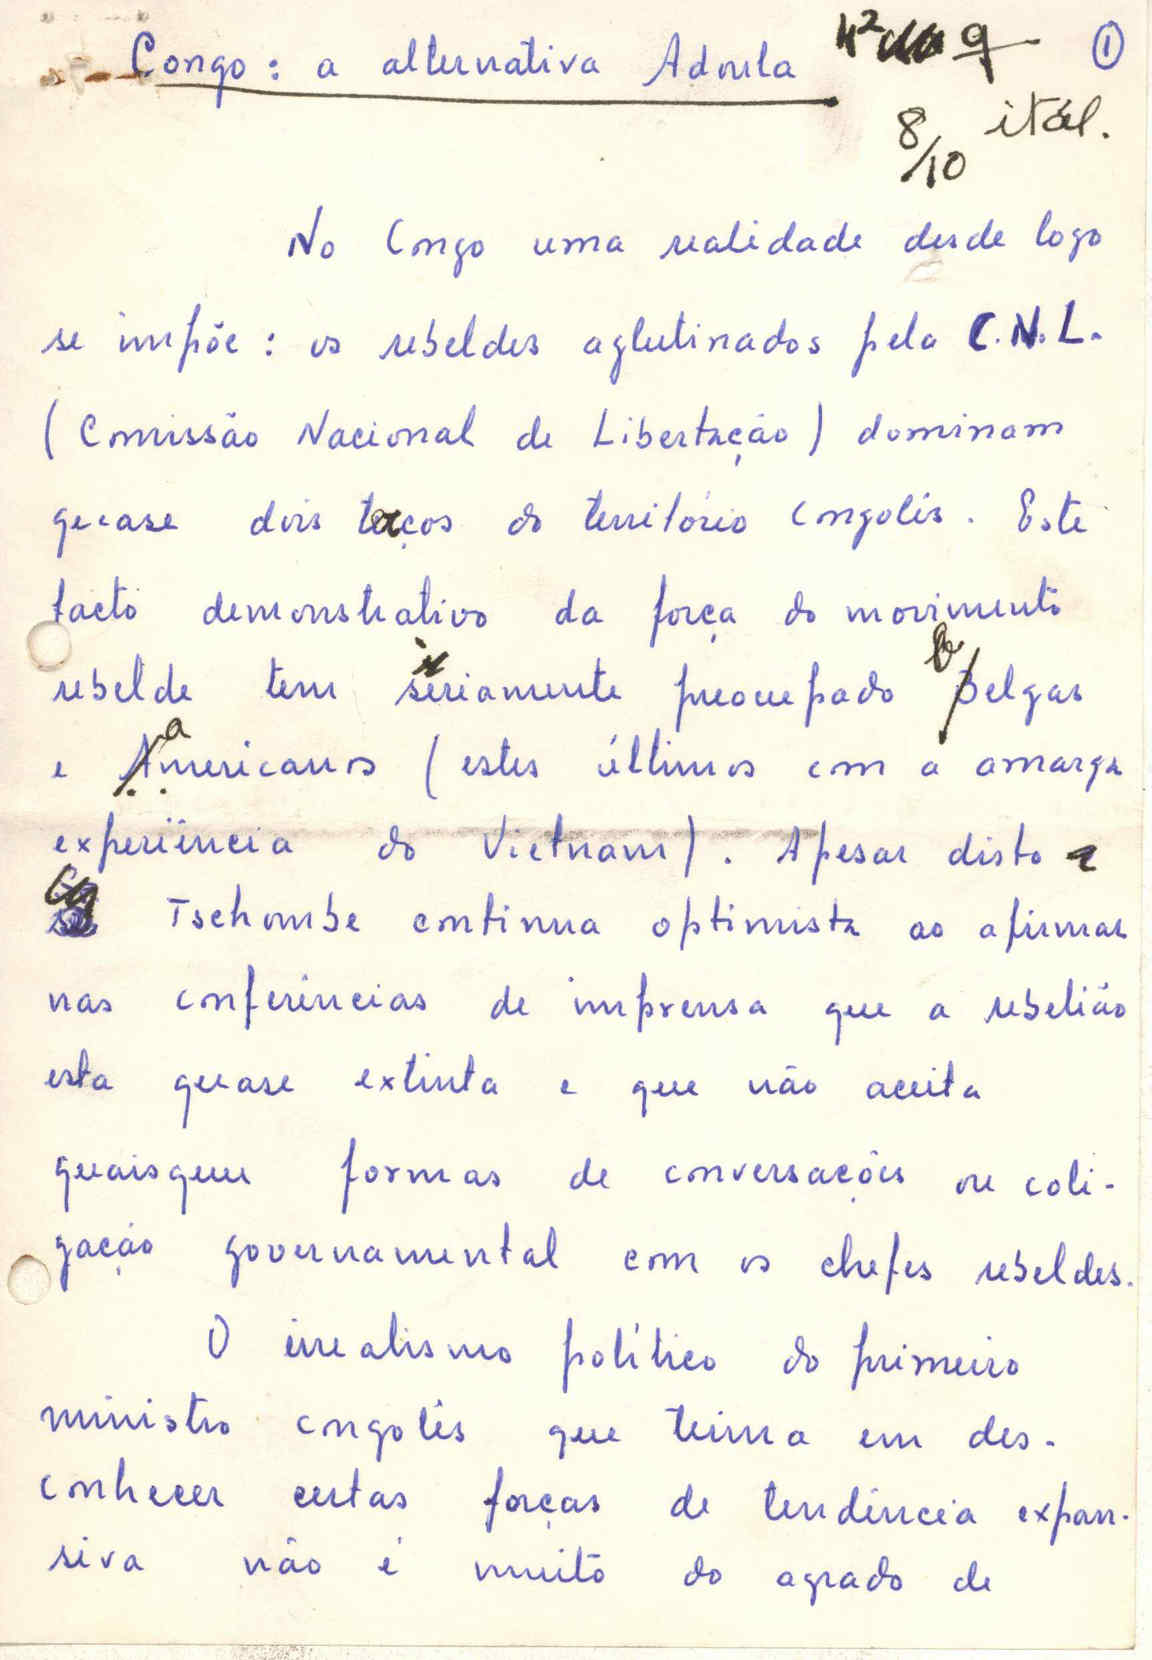 Congo: a alternativa Adoula
9
①
8/10 itál.
No Congo uma realidade desde logo
se impõe: os rebeldes aglutinados pela C.N.L.
(Comissão Nacional de Libertação) dominam
quase dois terços do território congolês. Este
facto demonstrativo da força do movimento
rebelde tem sèriamente preocupado belgas
e americanos (estes últimos com a amarga
experiência do Vietnam). Apesar disto
Tschombe continua optimista ao afirmar
nas conferências de imprensa que a rebelião
esta quase extinta e que não aceita
quaisquer formas de conversações ou coli-
gação governamental com os chefes rebeldes.
O irrealismo político do primeiro
ministro congolês que teima em des-
conhecer certas forças de tendência expan-
siva não é muito do agrado de